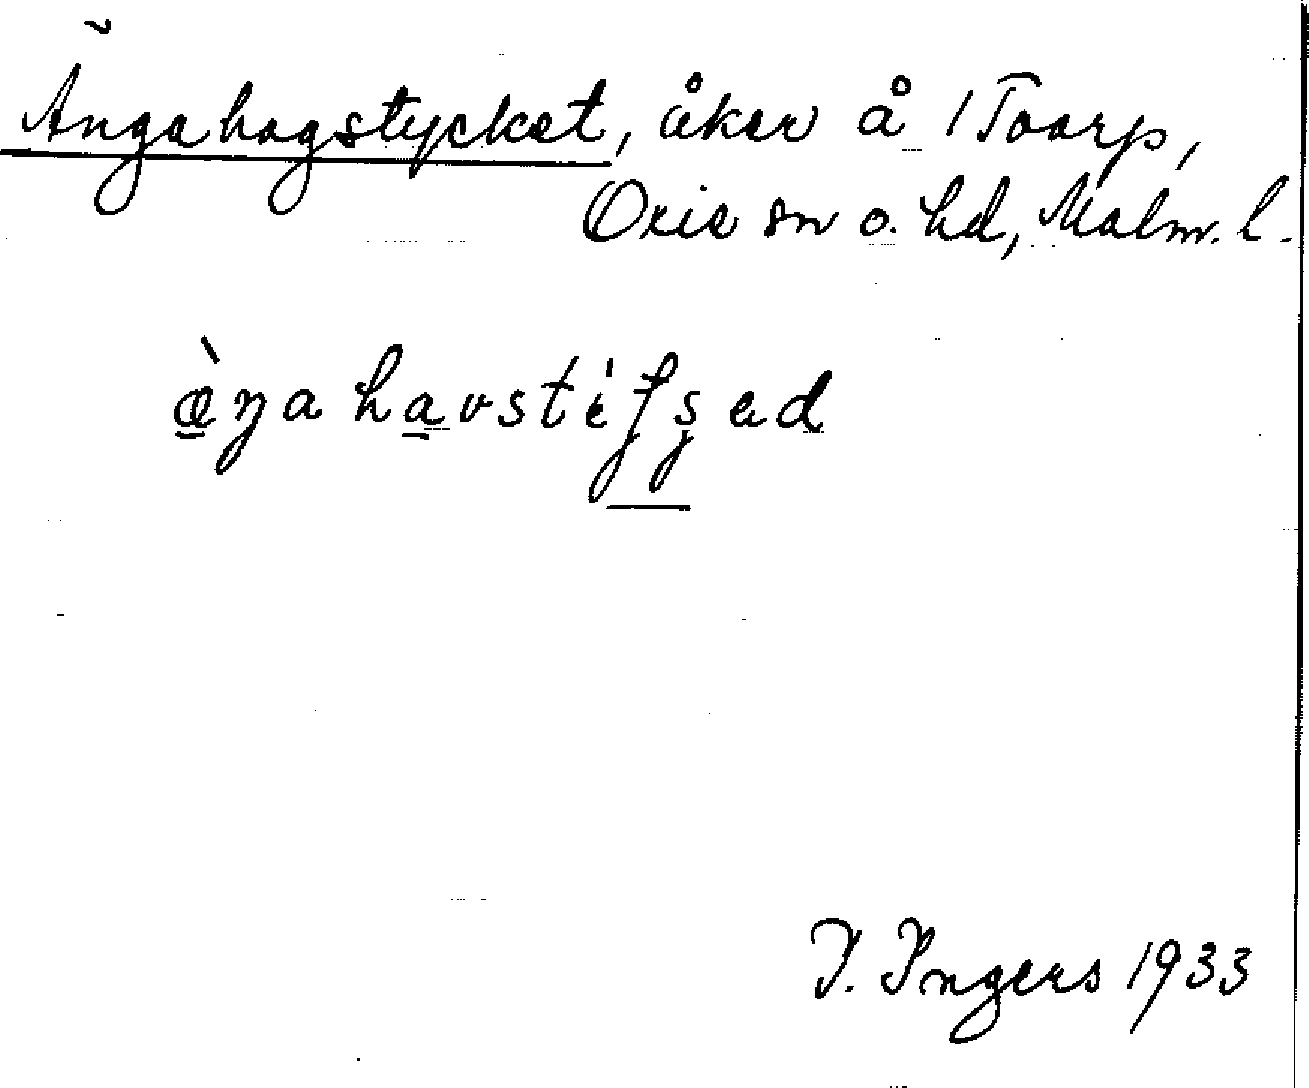 Ängahagstycket, åker å 1 Toarp,
Oxie sn o. hd, Malm. l.
æ̀ŋahavstéʄʂad
I. Ingers 1933